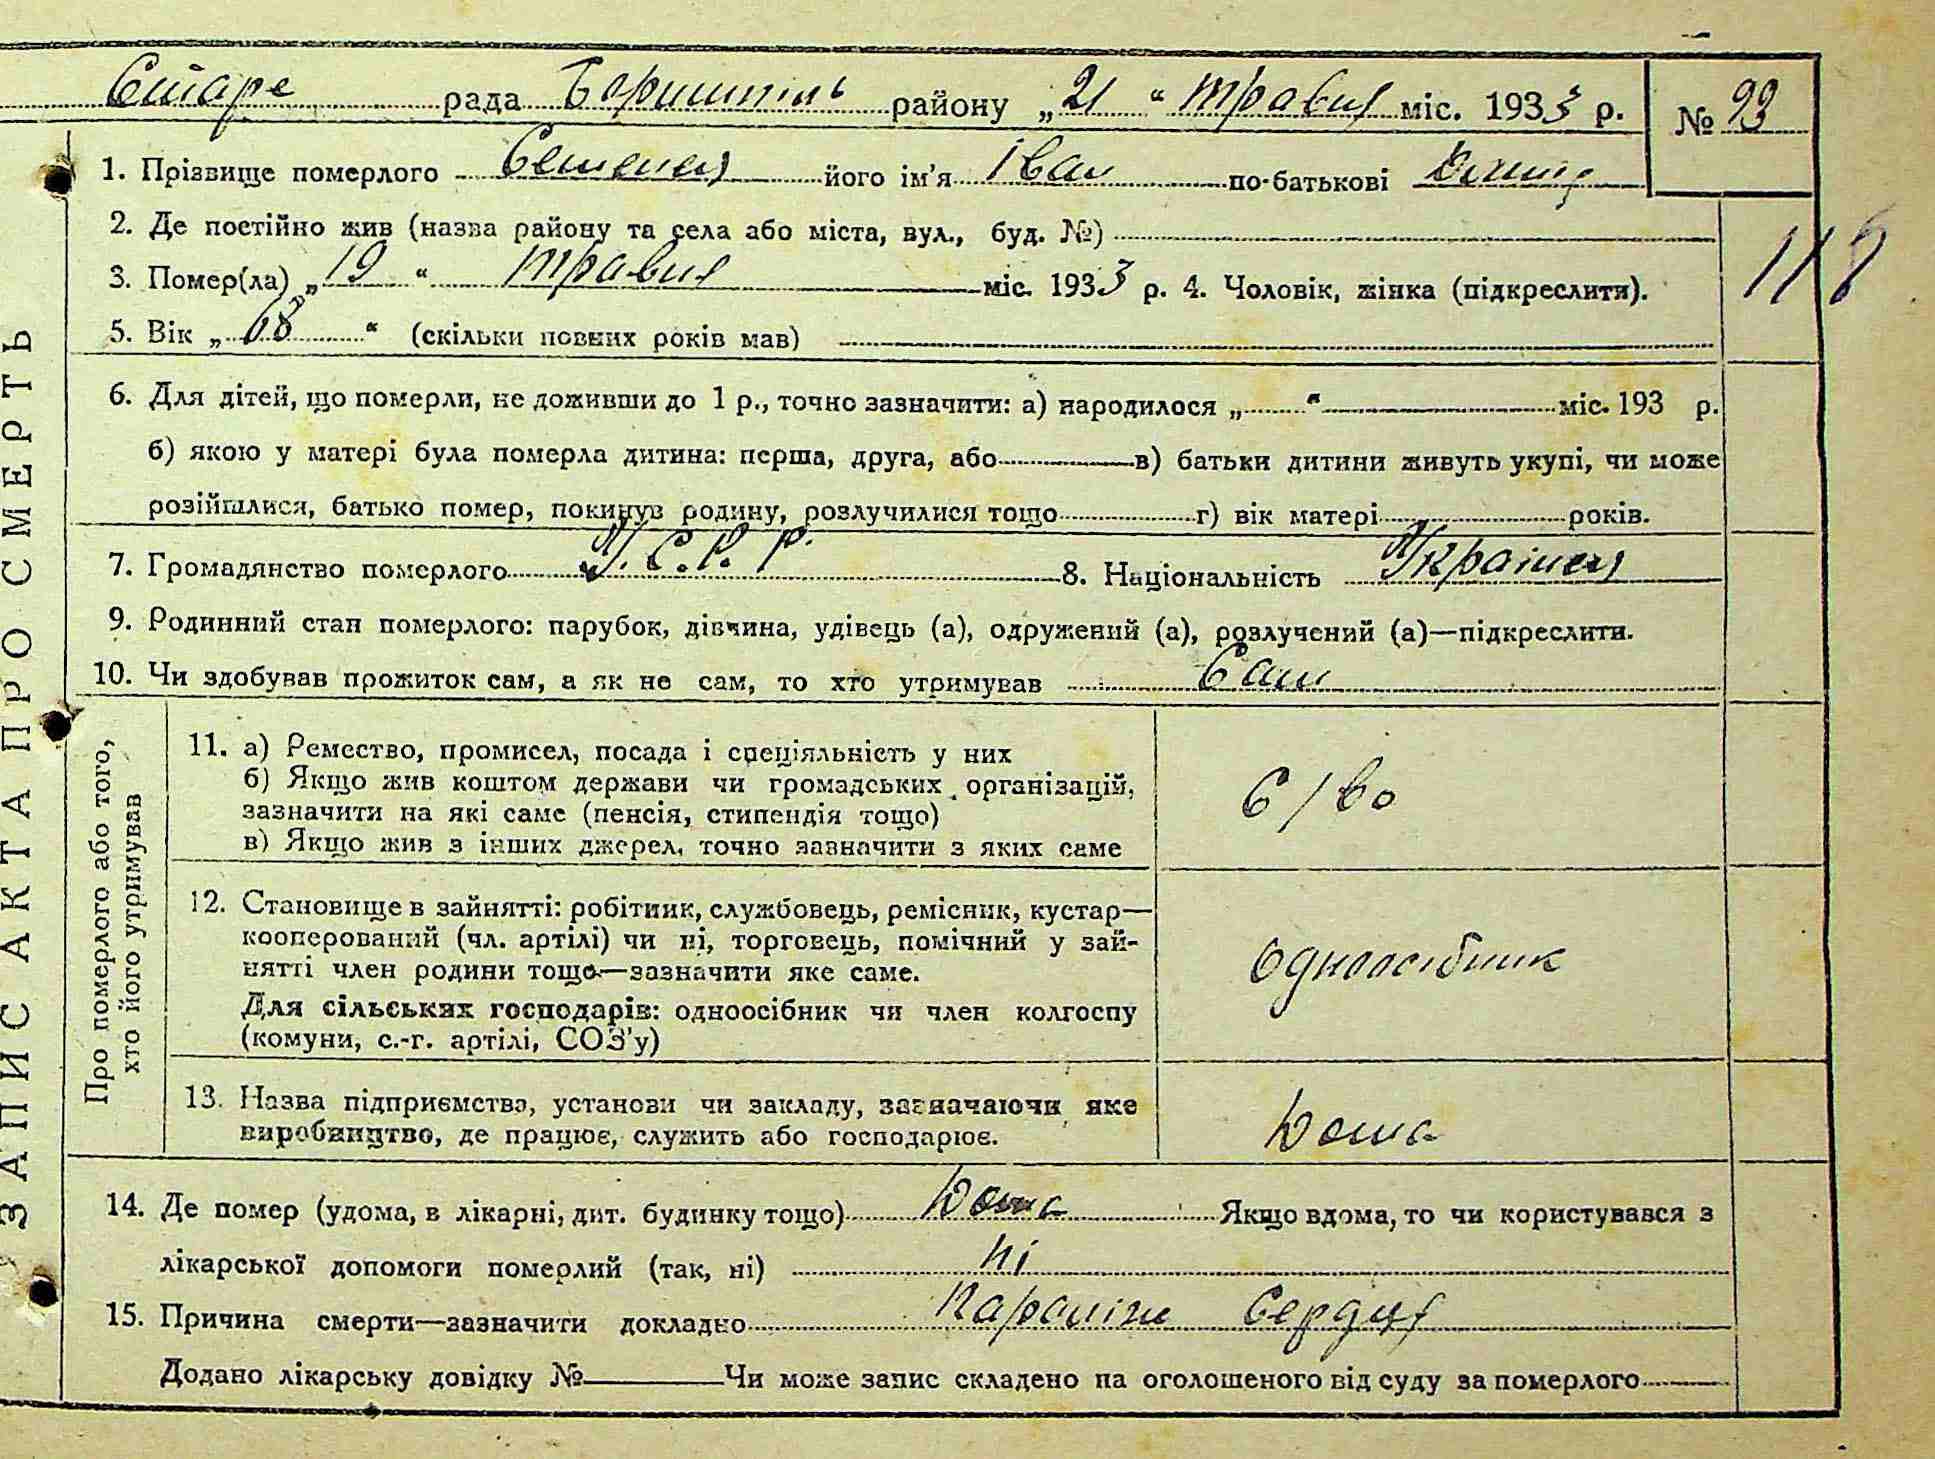 Старе рада Бориспіль району „21“ травня міс. 1933 р. № 93
1. Прізвище померлого Семеня його ім'я Іван по-батькові
118
2. Де постійно жив (назва району та села або міста, вул., буд. №)
3. Помер(ла) „19“ травня міс. 1933 р. 4. Чоловік, жінка (підкреслити).
5. Вік „68“ (скільки повних років мав)
6. Для дітей, що померли, не доживши до 1 р., точно зазначити: а) народилося „ “ міс. 193 р.
б) якою у матері була померла дитина: перша, друга, або в) батьки дитини живуть укупі, чи може
розійшлися, батько помер, покинув родину, розлучилися тощо г) вік матері років.
7. Громадянство померлого У.С.Р.Р. 8. Національність Українец
9. Родинний стан померлого: парубок, дівчина, удівець (а), одружений (а), розлучений (а)—підкреслити.
10. Чи здобував прожиток сам, а як не сам, то хто утримував Сам
ЗАПИС АКТА ПРО СМЕРТЬ
Про померлого або того,
хто його утримував
11. а) Ремество, промисел, посада і спеціяльність у них
б) Якщо жив коштом держави чи громадських організацій,
зазначити на які саме (пенсія, стипендія тощо)
в) Якщо жив з інших джерел, точно зазначити з яких саме
С/во
12. Становище в зайнятті: робітник, службовець, ремісник, кустар—
кооперований (чл. артілі) чи ні, торговець, помічний у зай-
нятті член родини тощо—зазначити яке саме.
Для сільських господарів: одноосібник чи член колгоспу
(комуни, с.-г. артілі, СОЗ'у)
одноосібник
13. Назва підприємства, установи чи закладу, зазначаючи яке
виробництво, де працює, служить або господарює.
Дома
14. Де помер (удома, в лікарні, дит. будинку тощо) Дома Якщо вдома, то чи користувався з
лікарської допомоги померлий (так, ні) ні
15. Причина смерти—зазначити докладно Сердця
Додано лікарську довідку № Чи може запис складено на оголошеного від суду за померлого